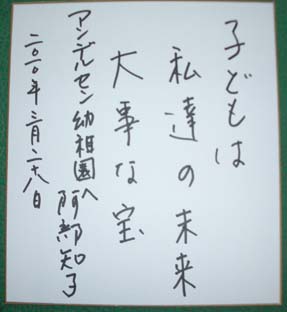 子どもは
私達の未来
大事な宝
アンデルセン幼稚園へ
阿部知子
二〇一〇年三月二十八日